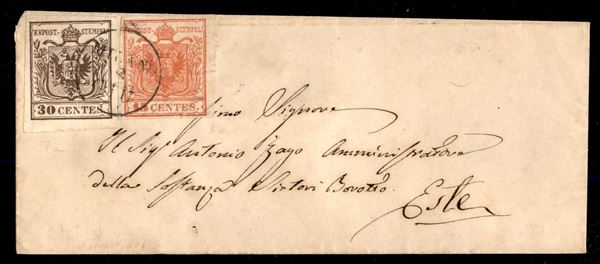 KKPOST-STEMPEL KKPOST-STEMPEL
30 CENTES. 15 CENTES.
Signore
Il Sigr Antonio Zago Amministratore
della Sostanza Sartori Borotto.
Este